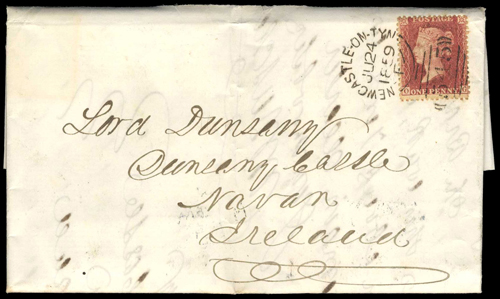 NEWCASTLE-ON-TYNE
JU 24
1859
POSTAGE
ONE PENNY
Lord Dunsany
Dunsany Castle
Navan
Ireland